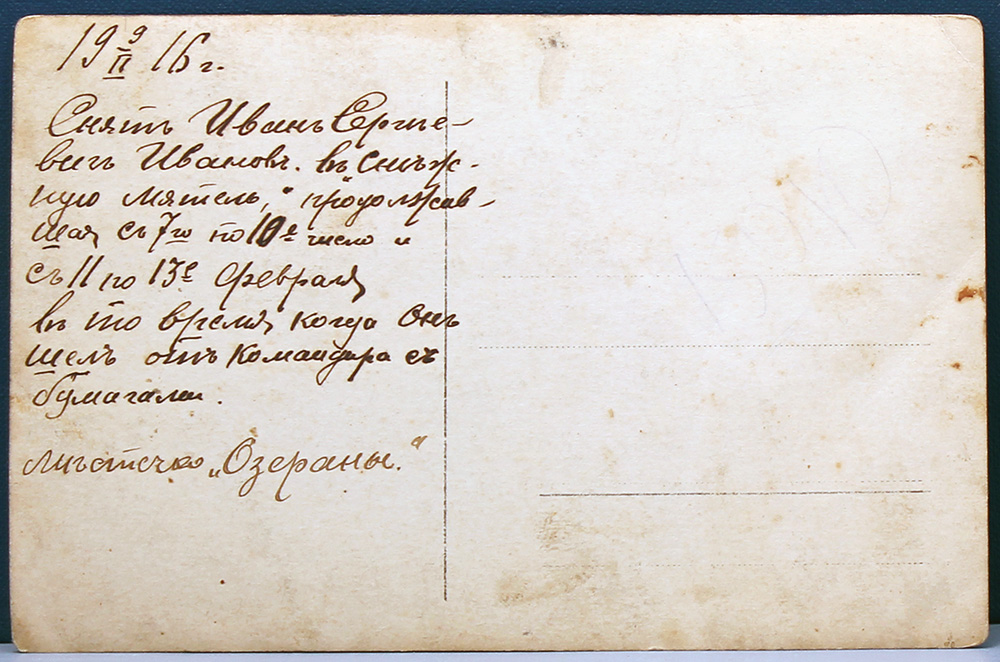 19 9/II 16 г.
Снятъ Иванъ Сергѣе-
вичъ Ивановъ. въ снѣж-
ную мятель, " продолжав-
шая съ 7го по 10е число и
съ 11 по 13е февраля
въ то время когда онъ
шелъ отъ командира съ
бумагами.
мѣстечко „Озераны."